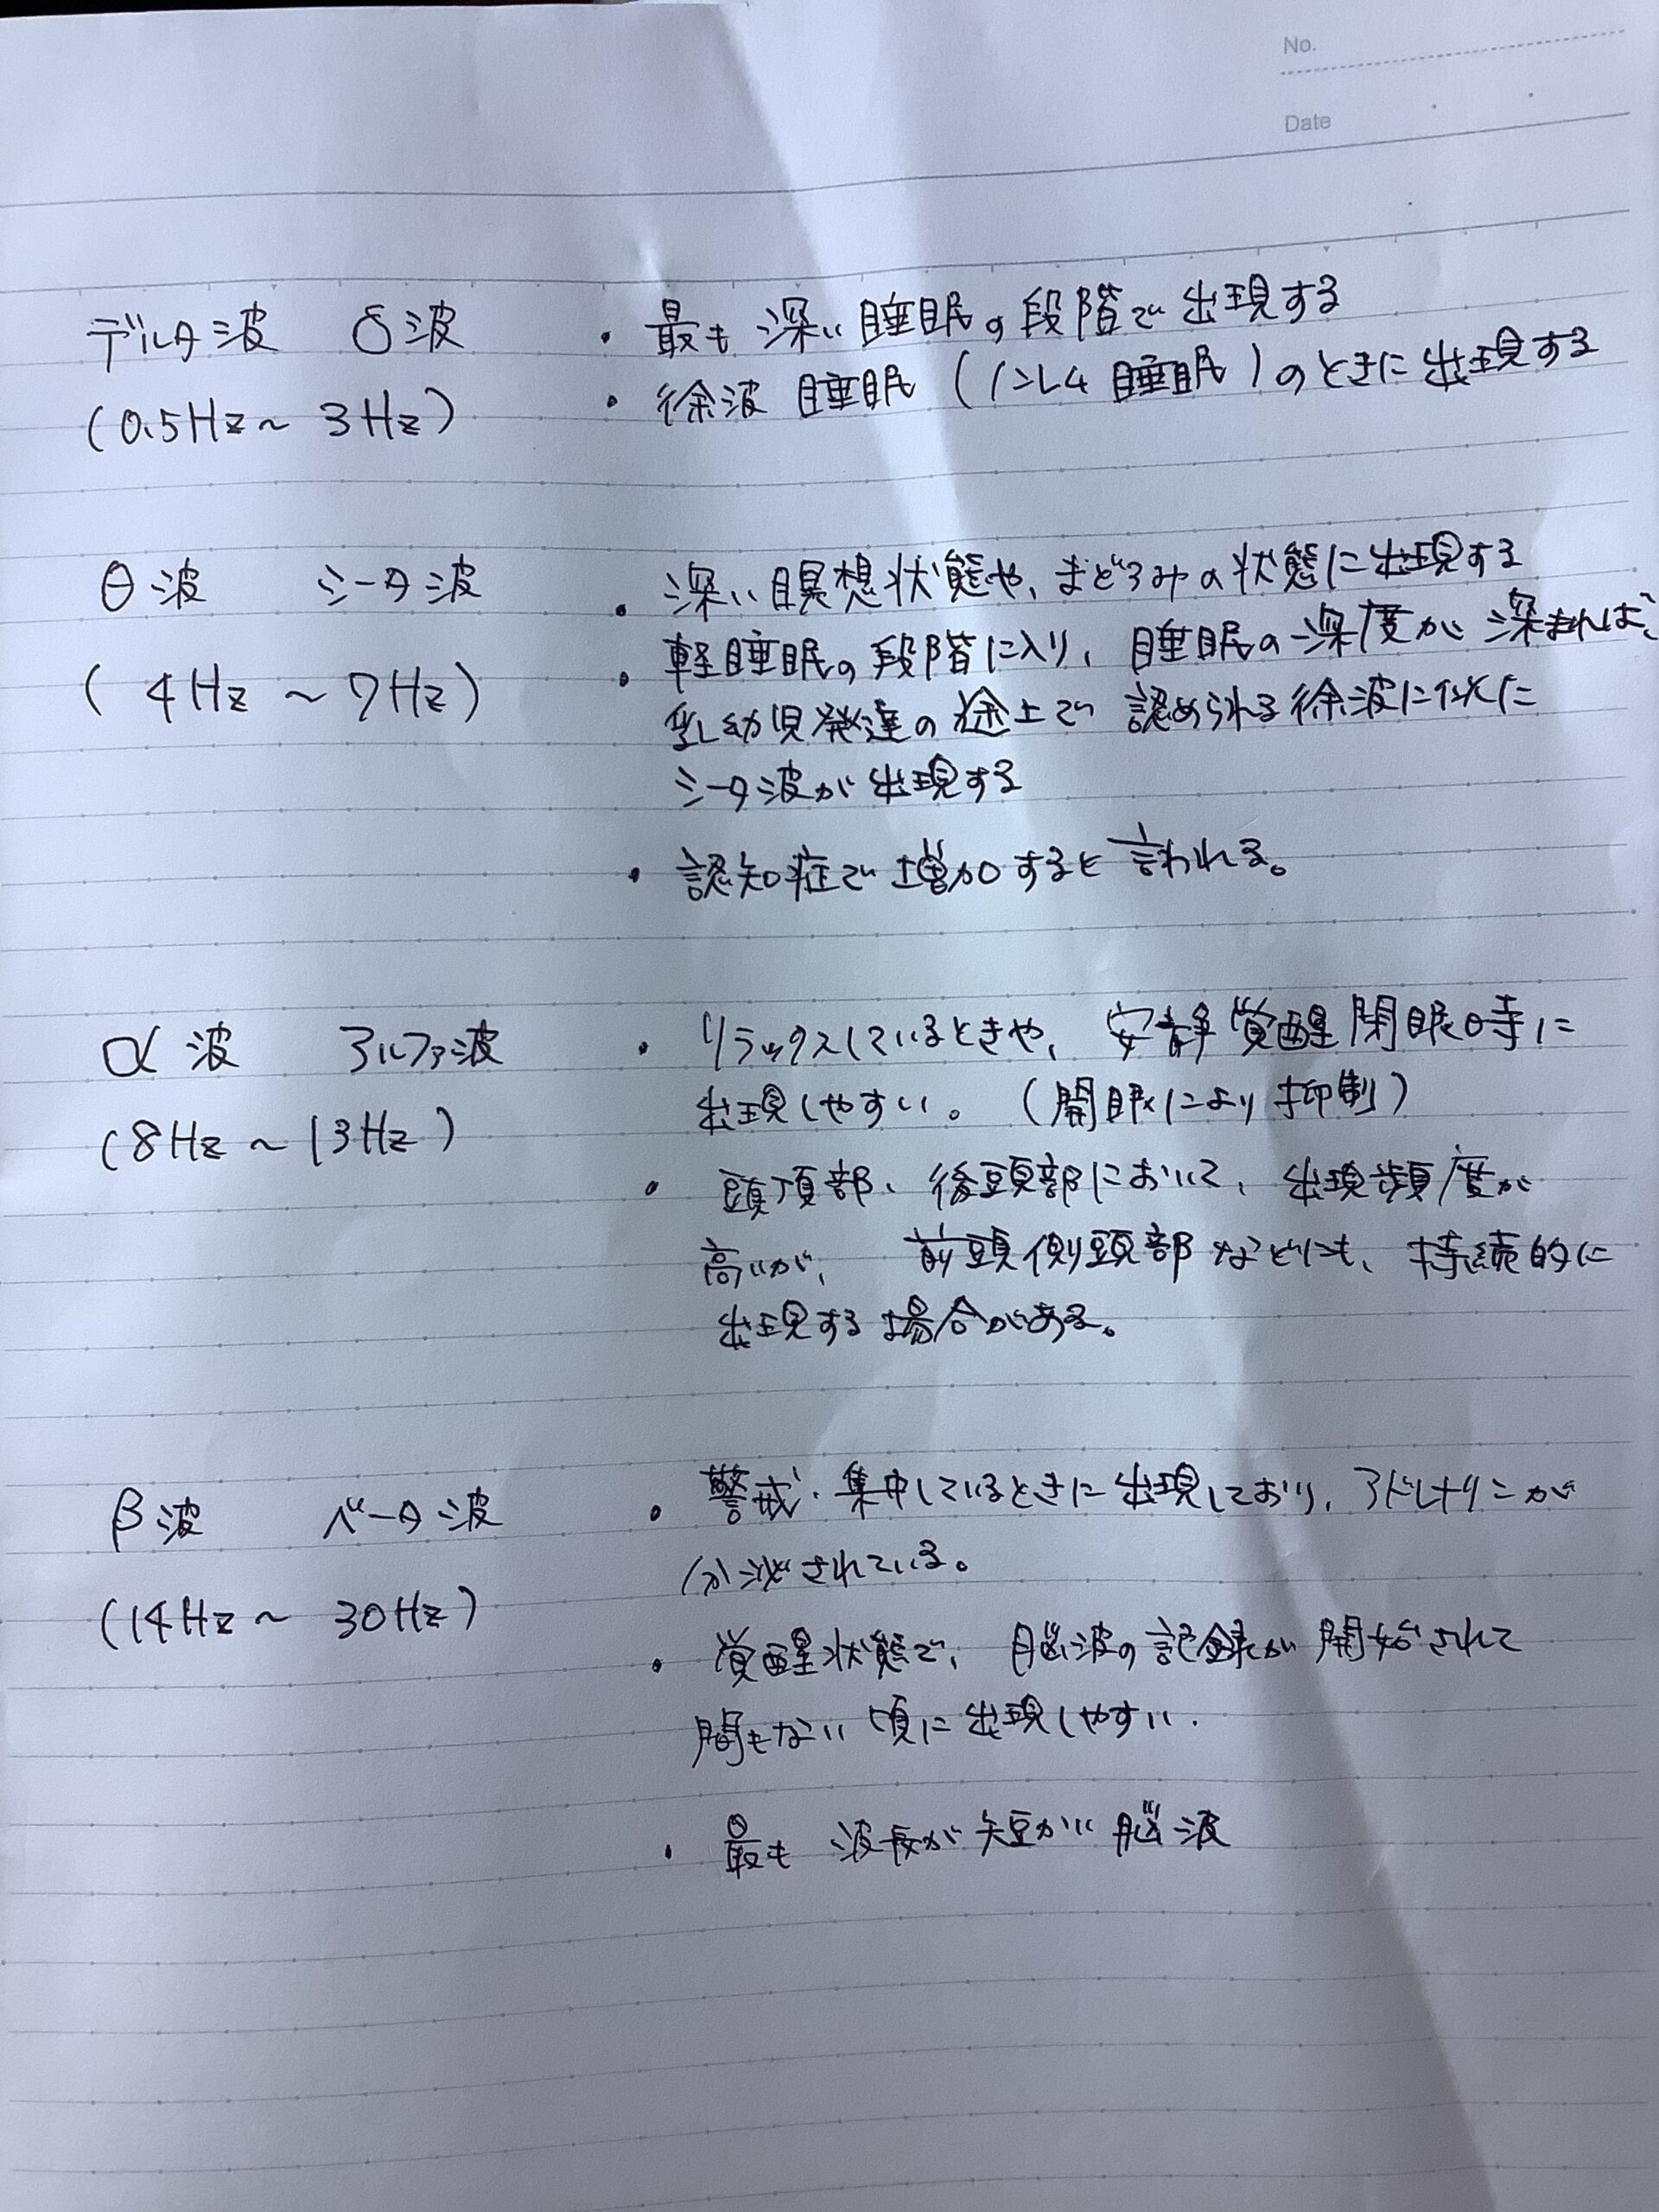 No.
Date
デルタ波 δ波 ・最も深い睡眠の段階で出現する
(0.5Hz〜3Hz) ・徐波睡眠(ノンレム睡眠)のときに出現する
θ波 シータ波 ・深い瞑想状態や、まどろみの状態に出現する
(4Hz〜7Hz) ・軽睡眠の段階に入り、睡眠の深度が深まれば、
乳幼児発達の途上で認められる徐波に似た
シータ波が出現する
・認知症で増加すると言われる。
α波 アルファ波 ・リラックスしているときや、安静覚醒閉眼時に
(8Hz〜13Hz) 出現しやすい。(開眼により抑制)
・頭頂部、後頭部において、出現頻度が
高いが、前頭側頭部などにも、持続的に
出現する場合がある。
β波 ベータ波 ・警戒・集中しているときに出現しており、アドレナリンが
分泌されている。
(14Hz〜30Hz)
・覚醒状態で、脳波の記録が開始されて
間もない頃に出現しやすい.
・最も波長が短かい脳波